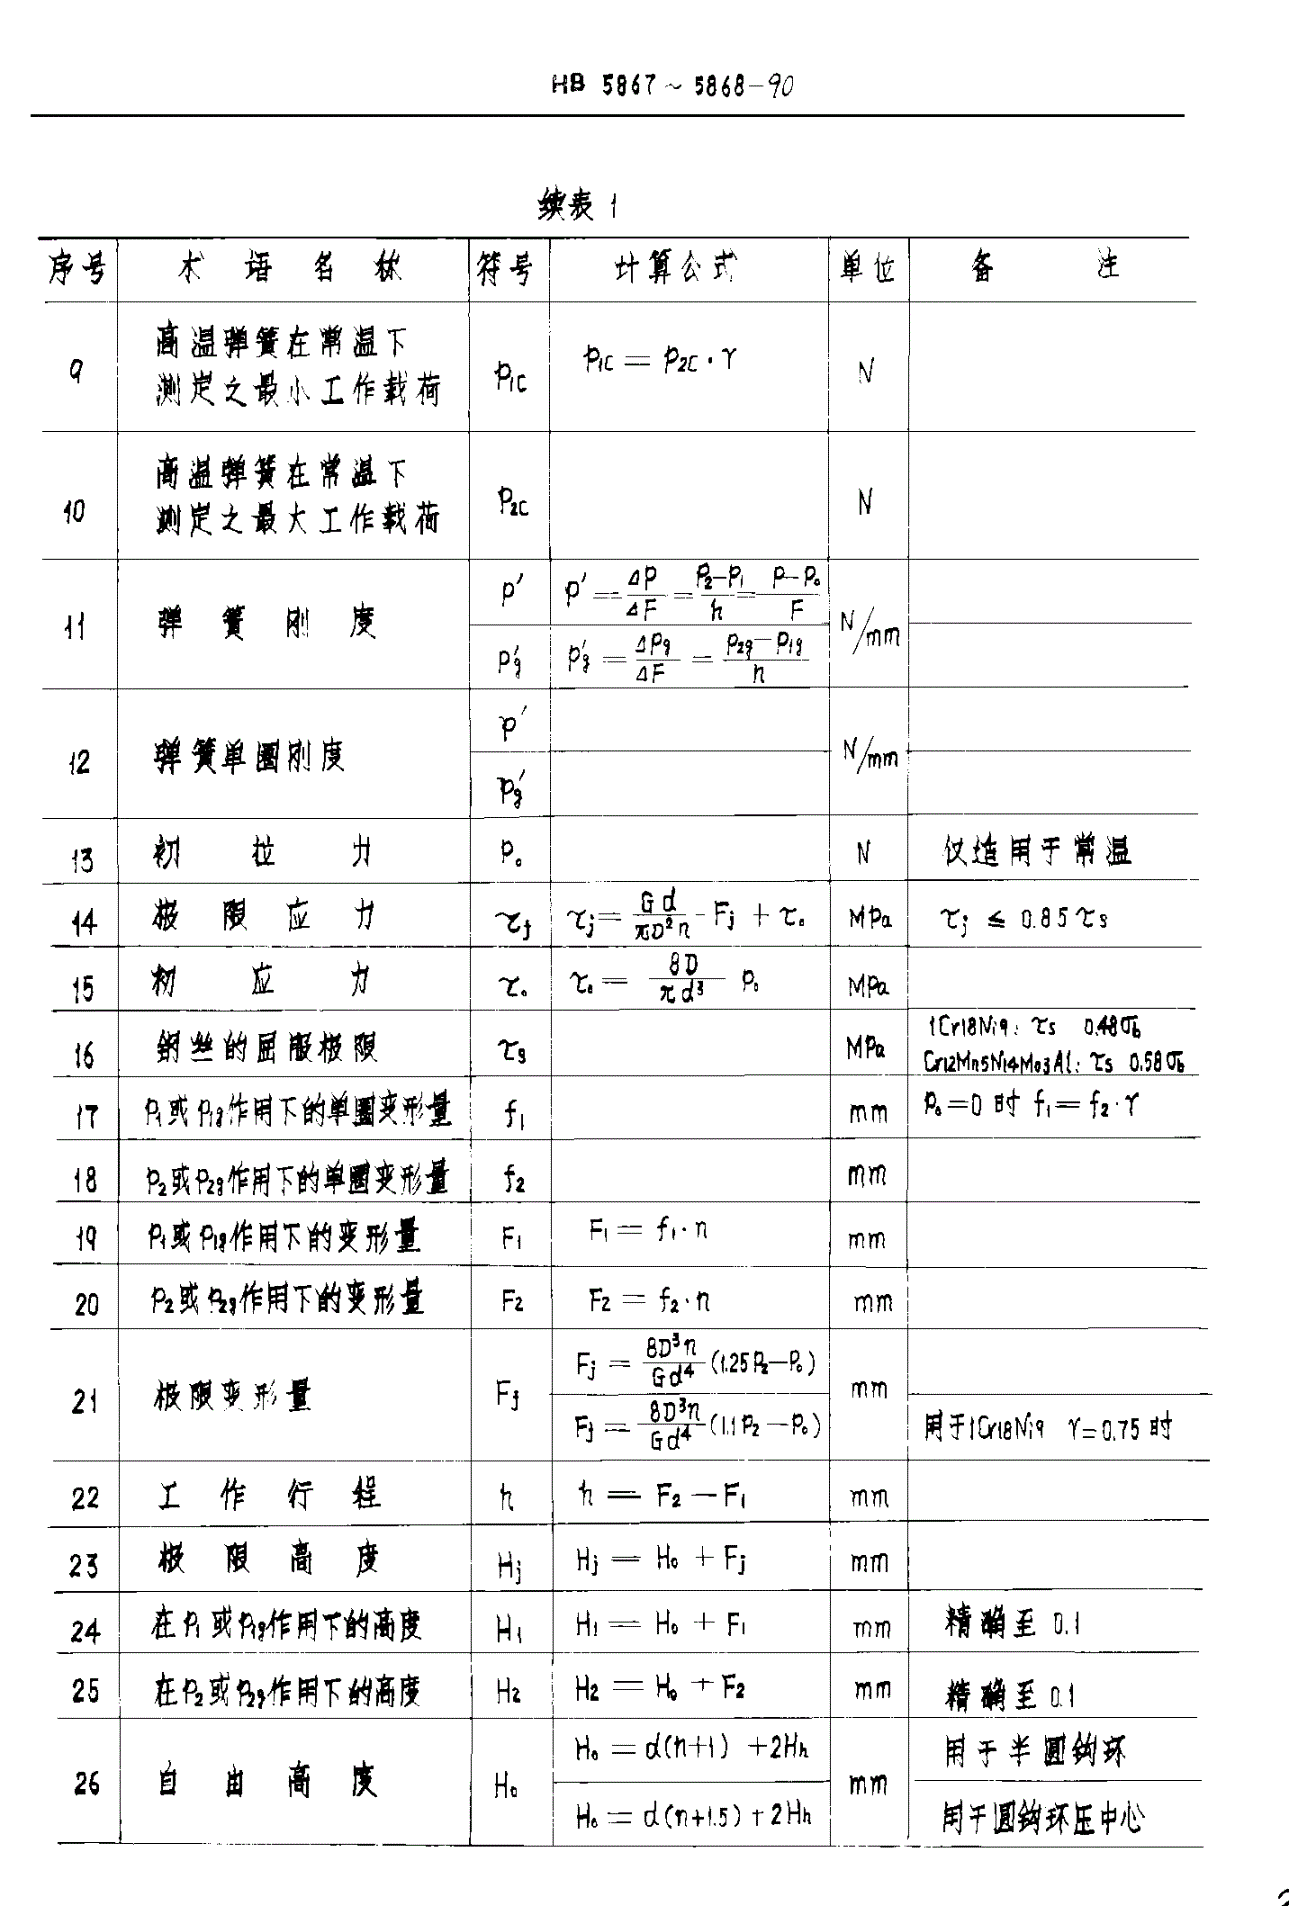 HB 5867～5868-90
续表 1
序号 术语名称 符号 计算公式 单位 备注
9 高温弹簧在常温下 P₁C P₁C = P₂C · γ N
测定之最小工作载荷
10 高温弹簧在常温下 P₂C N
测定之最大工作载荷
11 弹簧刚度 P′ P′ = ΔP/ΔF = (P₂-P₁)/h = (P-P₀)/F N/mm
P′g P′g = ΔPg/ΔF = (P₂g-P₁g)/h
12 弹簧单圈刚度 P′ N/mm
Pg′
13 初拉力 P₀ N 仅适用于常温
14 极限应力 τj τj = Gd/πD²n · Fj + τ₀ MPa τj ≤ 0.85τs
15 初应力 τ₀ τ₀ = 8D/πd³ P₀ MPa
16 钢丝的屈服极限 τs MPa 1Cr18Ni9: τs 0.48σb
Cr12Mn5Ni4Mo3Al: τs 0.58σb
17 P₁或P₁g作用下的单圈变形量 f₁ mm P₀=0时 f₁=f₂·γ
18 P₂或P₂g作用下的单圈变形量 f₂ mm
19 P₁或P₁g作用下的变形量 F₁ F₁ = f₁·n mm
20 P₂或P₂g作用下的变形量 F₂ F₂ = f₂·n mm
21 极限变形量 Fj Fj = 8D³n/Gd⁴ (1.25P₂-P₀) mm
Fj = 8D³n/Gd⁴ (1.1P₂-P₀) 用于1Cr18Ni9 γ=0.75时
22 工作行程 h h = F₂-F₁ mm
23 极限高度 Hj Hj = H₀ + Fj mm
24 在P₁或P₁g作用下的高度 H₁ H₁ = H₀ + F₁ mm 精确至 0.1
25 在P₂或P₂g作用下的高度 H₂ H₂ = H₀ + F₂ mm 精确至 0.1
26 自由高度 H₀ H₀ = d(n+1) + 2Hh mm 用于半圆钩环
H₀ = d(n+1.5) + 2Hh 用于圆钩环压中心